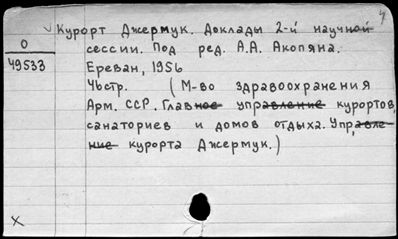 Курорт Джермук. Доклады 2-й научной
О
сессии. Под ред. А.А. Акопяна.
49533
Ереван, 1956
стр. (М-во здравоохранения
Арм. ССР. Главное управление курортов,
санаториев и домов отдыха. Управле-
ние курорта Джермук.)
X